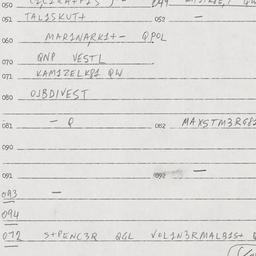 051 TALISKUT+ 052 —
060 MARINARK1+— QPOL
070 QNP VESTL
071 KAM1ZELKP1 QW
080 OJBDIVEST
081 — Q 082 MAXSTM3RGP1
090
091 092 —
093 —
094
072 S+PENC3R QGL VOL1N3RMALB1S+